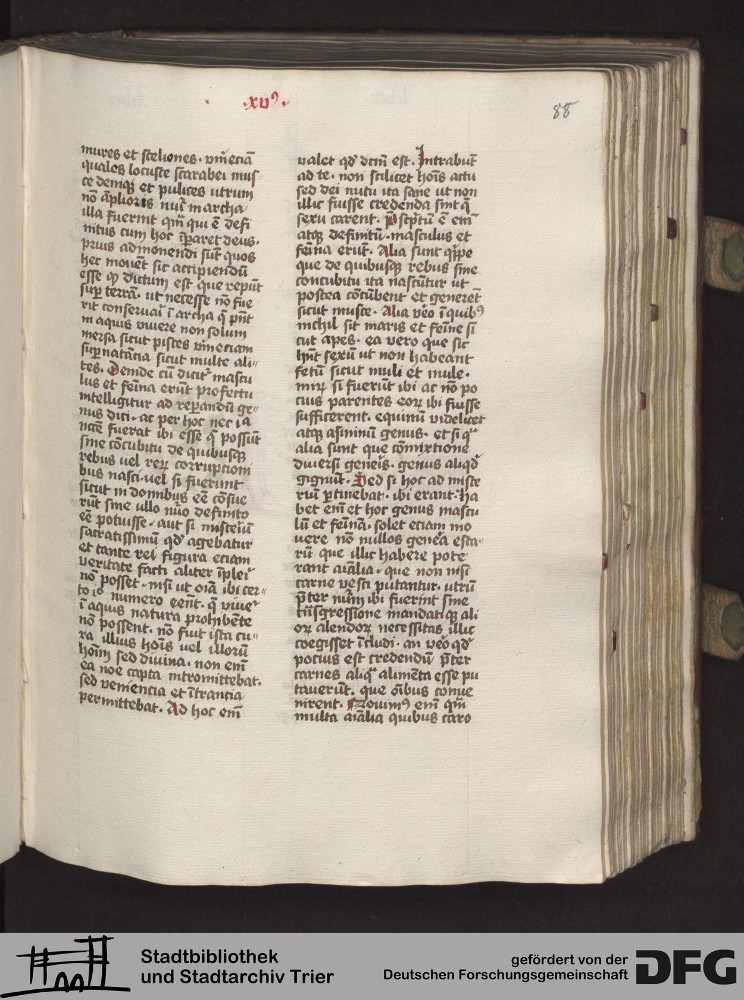 .xvꝰ.
88
mures et steliones. vn̄ eciā
quales locuste scarabei mus
ce deniqꝫ et pulices utrum
nō āpliores
illa fuerint qm̄ qui ē defi
nitus cum hoc īꝑaret deus.
prius admonendi sūt quos
hec mouēt sic accipiendū
esse dictum est que repūt
suꝑ terrā. ut necesse nō fue
rit conseruari ī archa q̄ pn̄t
in aquis viuere non solum
mersa sicut pisces vn̄ eciam
suꝑnatācia sicut multe ali
tes. Deinde cū dicit᷑ mascu
lus et feīna erūt profectu
intelligitur ad reꝑandū ge
nus dici. ac per hoc nec
fuerat ibi esse q̄ possūt
sine cōcubitu de quibusqꝫ
rebus uel reꝝ corrupcioni
bus nasci. vel si fuerunt
sicut in domibus eē cōsue
rūt sine ullo nūo definito
eē potuisse. aut si misteriū
sacratissimū qd̄ agebatur
et tante rei figura eciam
veritate facti aliter īplei᷑
nō posset. nisi ut oīa ibi cer
to numero eēnt. q̄ viue᷑
ī aquis natura prohibēte
nō possent. nō fuit ista cu
ra illius hoīs uel illorū
hoīm sed diuina. non em̄
ea noe capta intromittebat.
sed veniencia et ītrancia
permittebat. Ad hoc em̄
valet qd̄ dcm̄ est. Intrabūt
ad te. non scilicet hoīs actu
sed dei nutu ita sane ut non
illic fuisse credenda sint q̄
sexu carent. Pscptū ē em̄
atqꝫ definitū. masculus et
feīna erūt. Alia sunt qͥpe
que de quibusqꝫ rebus sine
concubitu ita nascūtur ut
postea cōcūbent et generēt
sicut musce. Alia vēo ī quibꝰ
nichil sit maris et feīne si
cut apes. ea vero que sic
hn̄t sexū ut non habeant
fetū sicut muli et mule.
mirꝝ si fuerūt ibi ac nō po
cius parentes eoꝝ ibi fuisse
sufficerent. equinū videlicet
atqꝫ asininū genus. et si qᵃ
alia sunt que cōmixtione
diuersi geneīs. genus aliqd̄
gignūt. Sed si hoc ad miste
riū ꝑtinebat. ibi erant. ha
bet em̄ et hoc genus mascu
lū et feīnā. solet eciam mo
uere nō nullos genera esca
rū que illic habere pote
rant aīalia. que non nisi
carne vesci putantur. utrū
p̄ter nūm ibi fuerint sine
trn̄sgressione mandati qꝫ ali
oꝝ alendoꝝ necessitas illic
coegisset īcludi. an vēo qd̄
pocius est credendū p̄ter
carnes aliqᵃ alimēta esse pu
tauerūt. que oībus conue
nirent. Nouimꝰ em̄ qm̄
multa aīalia quibus caro
Stadtbibliothek
und Stadtarchiv Trier
gefördert von der
Deutschen Forschungsgemeinschaft
DFG